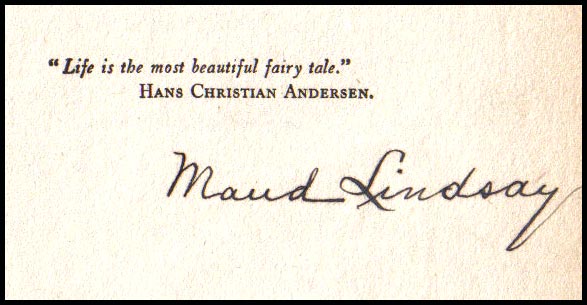 “Life is the most beautiful fairy tale.”
Hans Christian Andersen.
Maud Lindsay